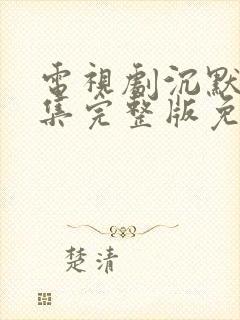 電視劇沉默
集完整版免
楚清